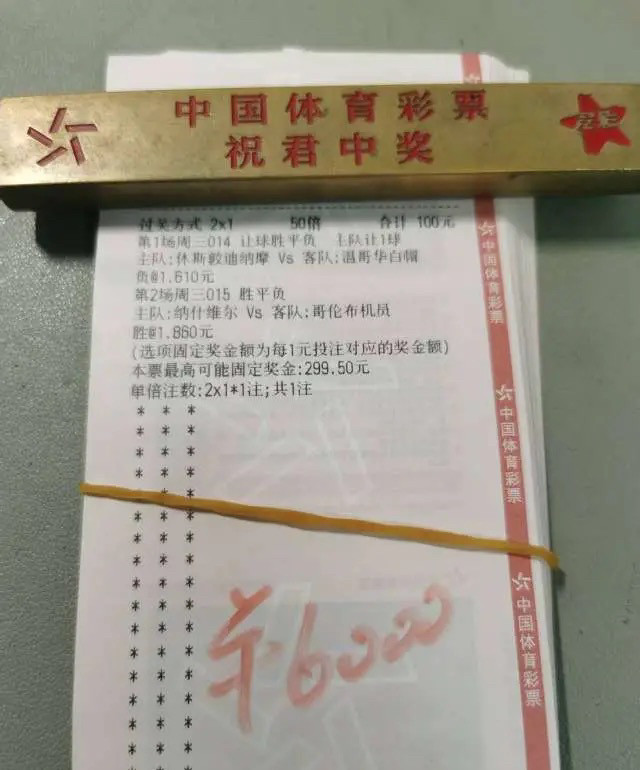 中国体育彩票
祝君中奖
过关方式 2x1 50倍 合计 100元
第1场周三014 让球胜平负 主队让1球
主队:休斯敦迪纳摩 Vs 客队:温哥华白帽
负@1.610元
第2场周三015 胜平负
主队:纳什维尔 Vs 客队:哥伦布机员
胜@1.860元
(选项固定奖金额为每1元投注对应的奖金额)
本票最高可能固定奖金:299.50元
单倍注数:2x1*1注;共1注
¥6000
中国体育彩票
中国体育彩票
中国体育彩票